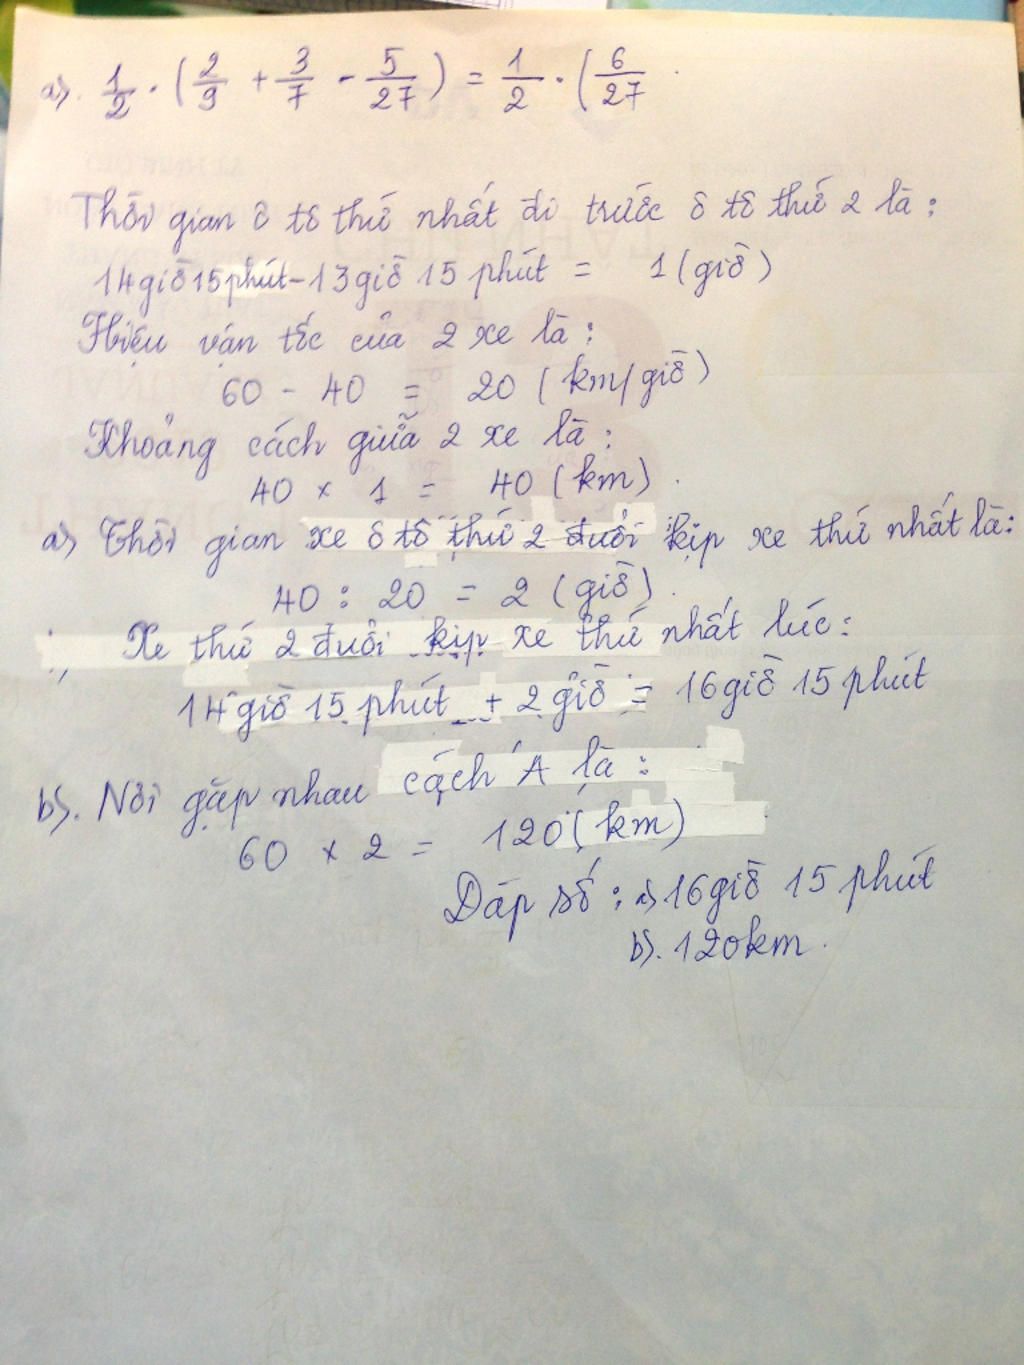 a). 1/2 . (2/9 + 3/7 - 5/27) = 1/2 . (6/27
Thời gian ô tô thứ nhất đi trước ô tô thứ 2 là:
14giờ15phút-13giờ 15 phút = 1 (giờ)
Hiệu vận tốc của 2 xe là:
60 - 40 = 20 (km/giờ)
Khoảng cách giữa 2 xe là:
40 x 1 = 40 (km).
a) Thời gian xe ô tô thứ 2 đuổi kịp xe thứ nhất là:
40 : 20 = 2 (giờ).
Xe thứ 2 đuổi kịp xe thứ nhất lúc:
14 giờ 15 phút + 2 giờ = 16giờ 15 phút
b). Nơi gặp nhau cách A là:
60 x 2 = 120 (km)
Đáp số: a) 16giờ 15 phút
b). 120km.